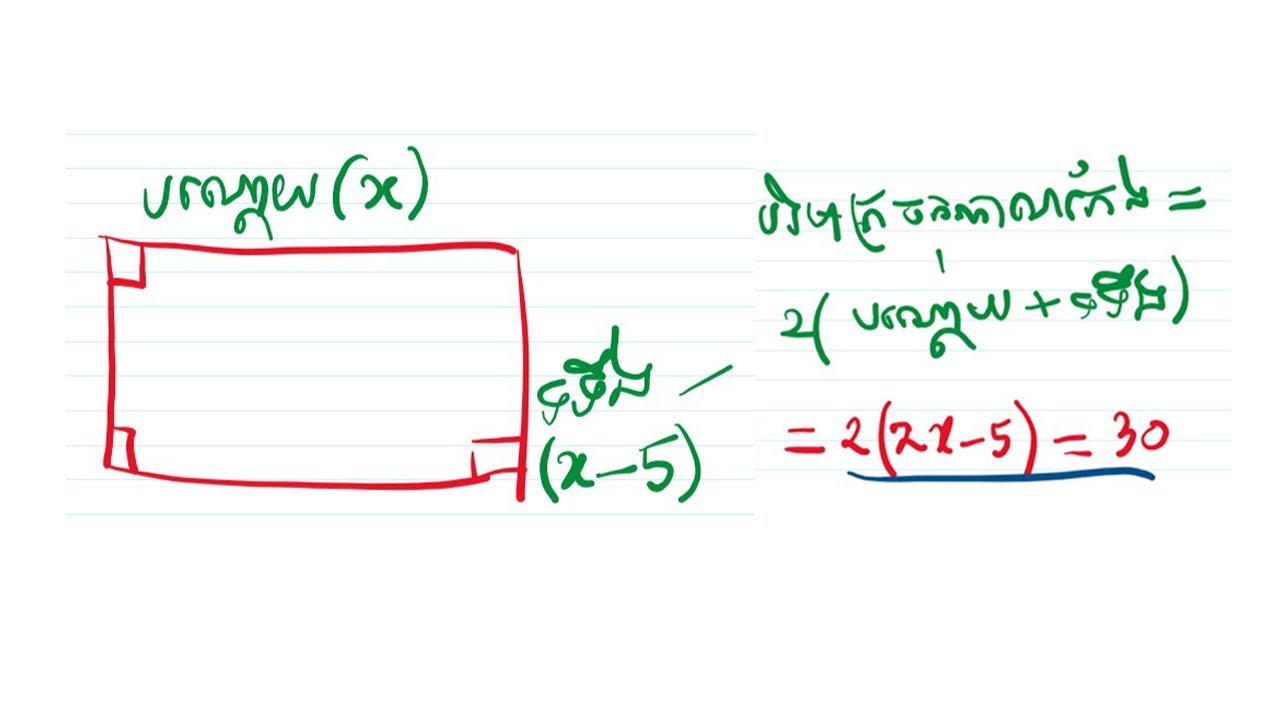 បណ្តោយ (x)
ទទឹង
(x-5)
បរិមាត្រចតុកោណកែង =
2( បណ្តោយ + ទទឹង)
= 2(2x-5) = 30